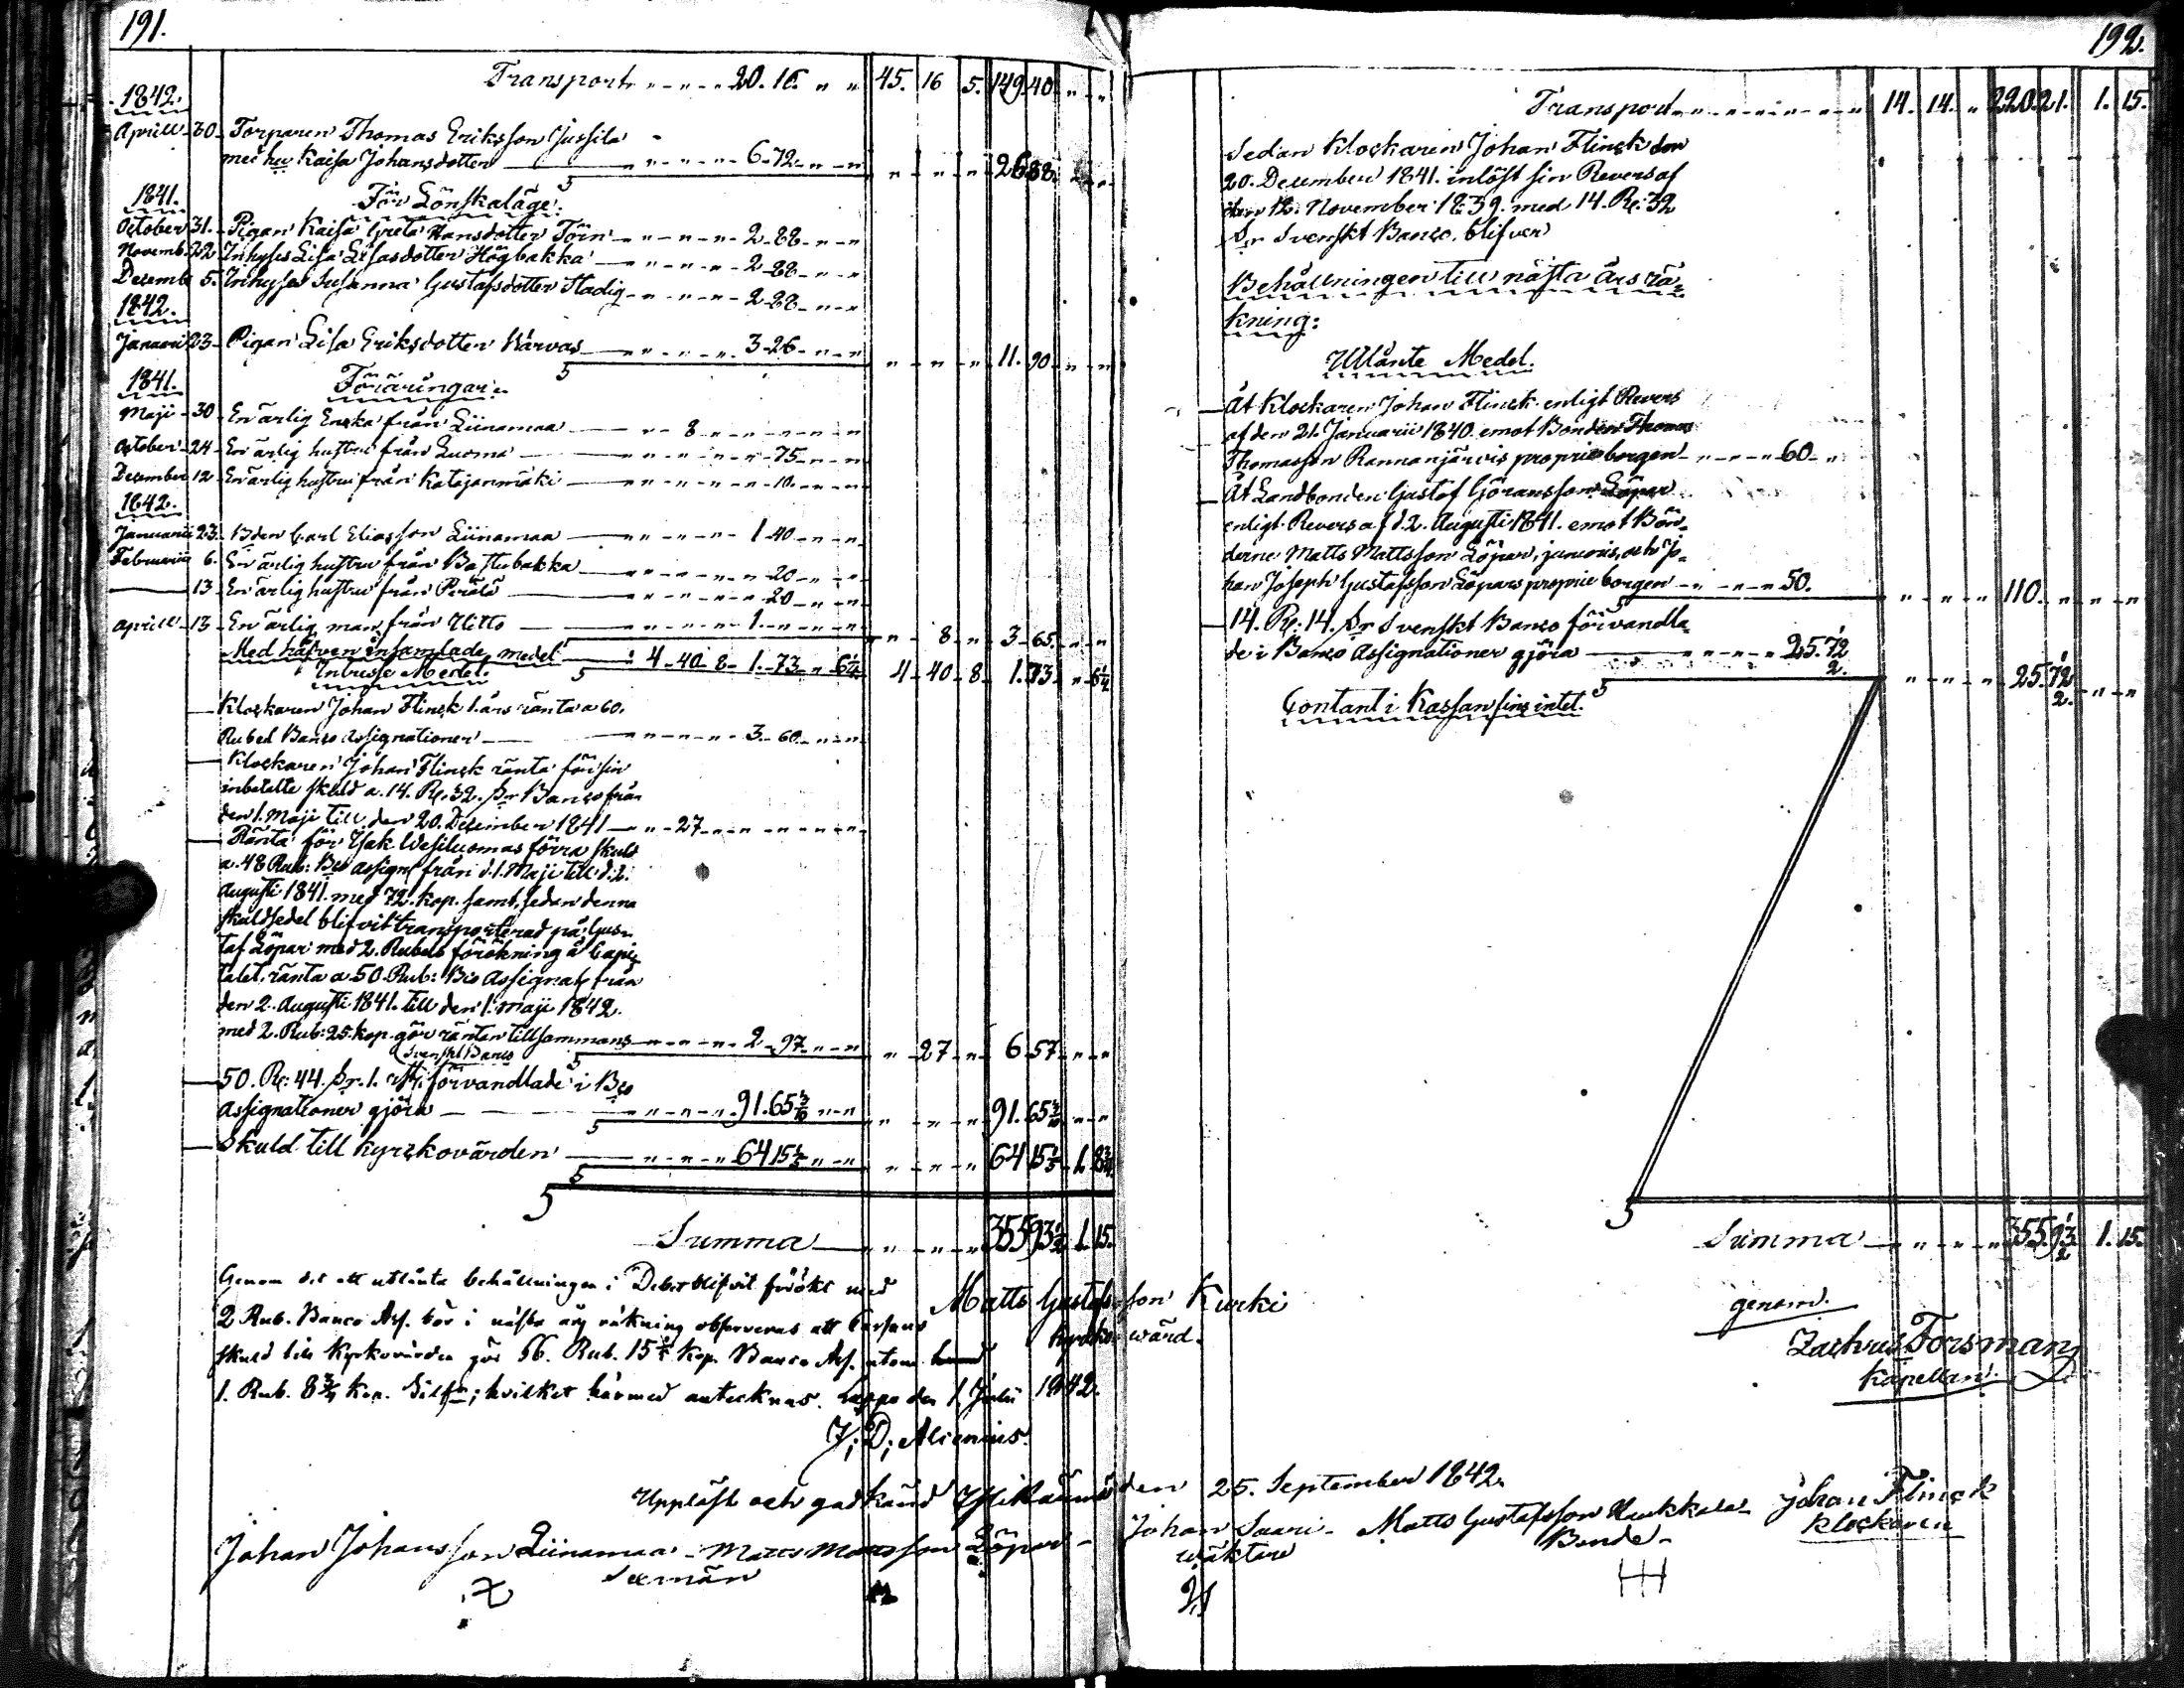 191.
Transport „ „ „ 20. 16. „ „ 45. 16 5. 149. 40 „ „
1842.
Aprill 30 Torparen Thomas Eriksson Jussila
med hu Kaisa Johansdotter „ „ „ 6-72 „ „ „ „ „ 26 88 „ „
1841. För Lönskaläge:
October 31. Pigan Kaisa Greta Hansdotter Törn „ „ „ 2-88 „ „
Novemb. 22 Inhyses Lisa Lisasdotter Högbakka „ „ „ 2-88 „ „
Decemb 5. Inhyses Susanna Gustafsdotter Stadig „ „ „ 2-88 „ „
1842.
Januari 23 Pigan Lisa Eriksdotter Karvas „ „ „ 3-26 „ „ „ „ „ 11. 90 „ „
1841. Föräringar.
Maji 30 En ärlig Encka från Liinamaa „ 8 „ „ „ „
October 24 En ärlig hustru från Luoma „ „ „ „ 75 „ „
December 12 En ärlig hustru från Katajanmäki „ „ „ „ 10 „ „
1842.
Januarii 23. Bden Carl Eliasson Liinamaa „ „ „ 1-40 „ „
Februarii 6. En ärlig hustru från Bastubakka „ „ „ „ 20 „ „
13 En ärlig hustru från Perälä „ „ „ „ 20 „ „
Aprill 13 En ärlig man från Hitto „ „ „ 1. „ „ „ „ 8 „ 3-65 „ „
Med håfven insamlade medel 4-40 8-1.-73 „ 6¼ 4-40-8 1.73 „ 6¼
Influsse Medel.
Klockaren Johan Flinck 1. års ränta a 60.
Rubel Banco Assignationer „ „ „ 3-60 „ „
Klockaren Johan Flinck ränta för sin
inbetalte skuld a. 14. Rd. 32. sr Banco från
den 1. Maji till den 20. December 1841 „ 27 „ „ „ „
Ränta för Isak Wesiluomas förra skuld
a. 48 Rub: Bco Assigne från d. 1. Maji till d. 2.
Augusti 1841. med 72. kop. samt, sedan denna
skuldsedel blifvit transporterad på Gus-
taf Löpar med 2. Rubels förökning å Capi-
talet, ränta a 50. Rub: Bco Assignat från
den 2. Augusti 1841. till den 1. Maji 1842.
med 2. Rub: 25. kop. gör räntan tillsammans „ „ „ 2-97 „ „ „ 27 „ 6 57 „ „
Svenskt Banco
50. Rd: 44. sr. 1. förvandlade i Bco
Assignationer göra „ „ „ 91. 65 3/10 „ „ „ „ „ 91. 65 3/10 „ „
Skuld till Kyrckovärden „ „ „ 64 15 1/5 „ „ „ „ „ 64 15 1/5 1. 8¾
Summa „ „ „ 355 93½ 1. 15.
Genom det att utlånta behållningen i Debet blifvit förökt med
2 Rub. Banco Ass. bör i nästa års räkning observeras att Cassans
skuld till Kyrkovärden gör 66. Rub. 15 1/5 kop. Banco Ass. utom
1. Rub. 8¾ kop. Silfr; hvilket härmed antecknas. Lappo den 1 Julii 1842.
J; D; Alcenius.
Matts Gustafsson Kurki
kyrckovärd.
192.
Transport „ „ „ 14. 14. „ 220. 21. 1. 15.
Sedan Klockaren Johan Flinck den
20. December 1841. inlöst sin Revers af
den 12. November 1839. med 14. Rd: 32
sr Svenskt Banco, blifver
Behållningen till nästa års rä-
kning:
Utlånte Medel.
Åt Klockaren Johan Flinck enligt Revers
af den 21. Januarii 1840. emot Bonden Thomas
Thomasson Rannanjärvis proprieborgen „ „ „ 60 „
Åt Landbonden Gustaf Göransson Löpar
enligt Revers af d. 2. Augusti 1841. emot Bön-
derne Matts Mattsson Löpar, junioris, och Jo-
han Joseph Gustafsson Löpars proprie borgen „ „ „ 50. „ „ „ 110. „ „ „
14. Rd: 14. sr Svenskt Banco förvandla-
de i Banco Assignationer göra „ „ „ 25. 72½ „ „ „ 25. 72½ „ „
Contant i Kassan fins intet.
Summa „ „ „ 355. 93½ 1. 15.
genom.
Zachris Forsman
Kapellan.
Uppläst och godkänd Ylikaumå den 25. September 1842.
Johan Johansson Liinamaa Matts Mattsson Löpar Johan Saari Matts Gustafsson Johan Flinck
Sexmän wäktare Bonde Klockaren